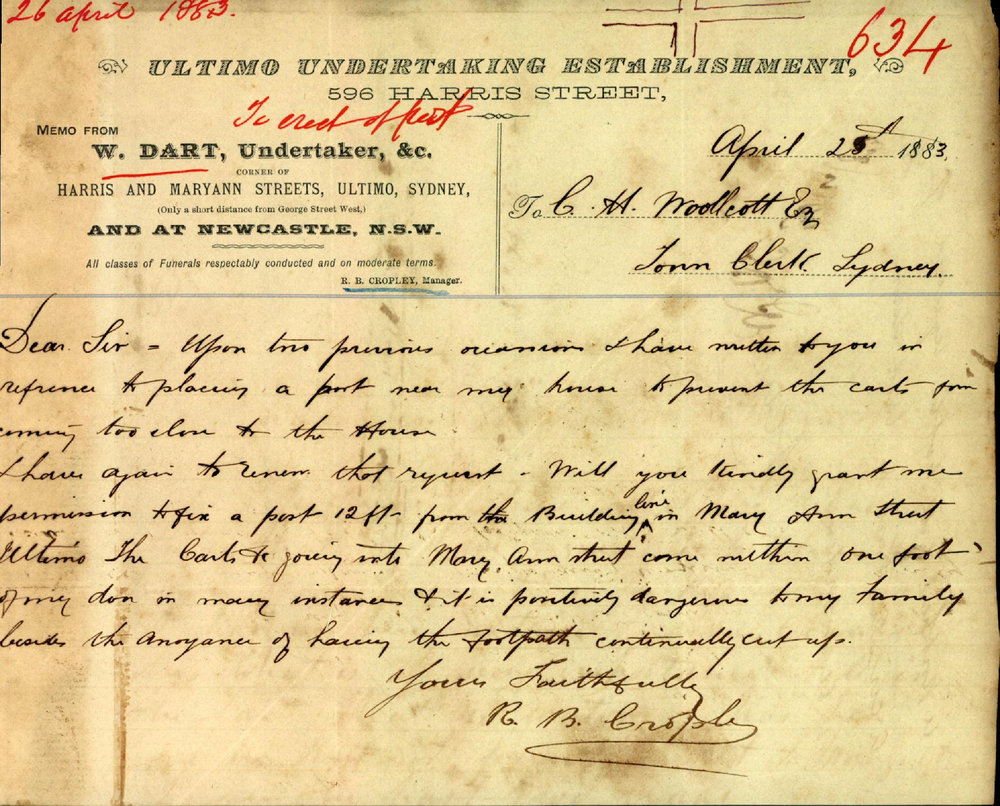 26 April 1883.
634
ULTIMO UNDERTAKING ESTABLISHMENT,
596 HARRIS STREET,
To erect a post
MEMO FROM
W. DART, Undertaker, &c.
CORNER OF
HARRIS AND MARYANN STREETS, ULTIMO, SYDNEY,
(Only a short distance from George Street West,)
AND AT NEWCASTLE, N.S.W.
All classes of Funerals respectably conducted and on moderate terms.
R. B. CROPLEY, Manager.
April 1883.
To C. H. Woolcott Esq
Town Clerk Sydney.
Dear Sir = Upon two previous occasions I have written to you in
refrence to placing a post near my house to prevent the carts from
coming too close to the House
I have again to renew that request - Will you kindly grant me
permission to fix a post 12ft from the Building line in Mary Ann Street
Ultimo The Carts &c going into Mary Ann street come within one foot
of my door in many instances & it is positively dangerous to my Family
besides the anoyance of having the footpath continually cut up.
Yours Faithfully
R. B. Cropley